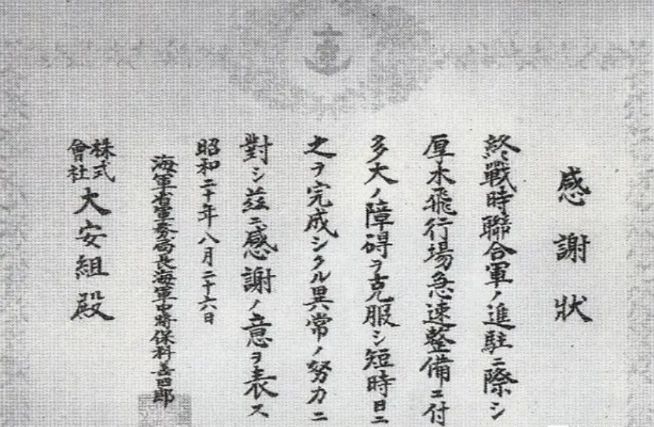 感謝狀
終戰時聯合軍ノ進駐ニ際シ
厚木飛行場急速整備ニ付
多大ノ障碍ヲ克服シ短時日ニ
之ヲ完成シタル異常ノ努力ニ
對シ茲ニ感謝ノ意ヲ表ス
昭和二十年八月二十六日
海軍省軍務局長海軍中將保科善四郎
株式會社大安組殿